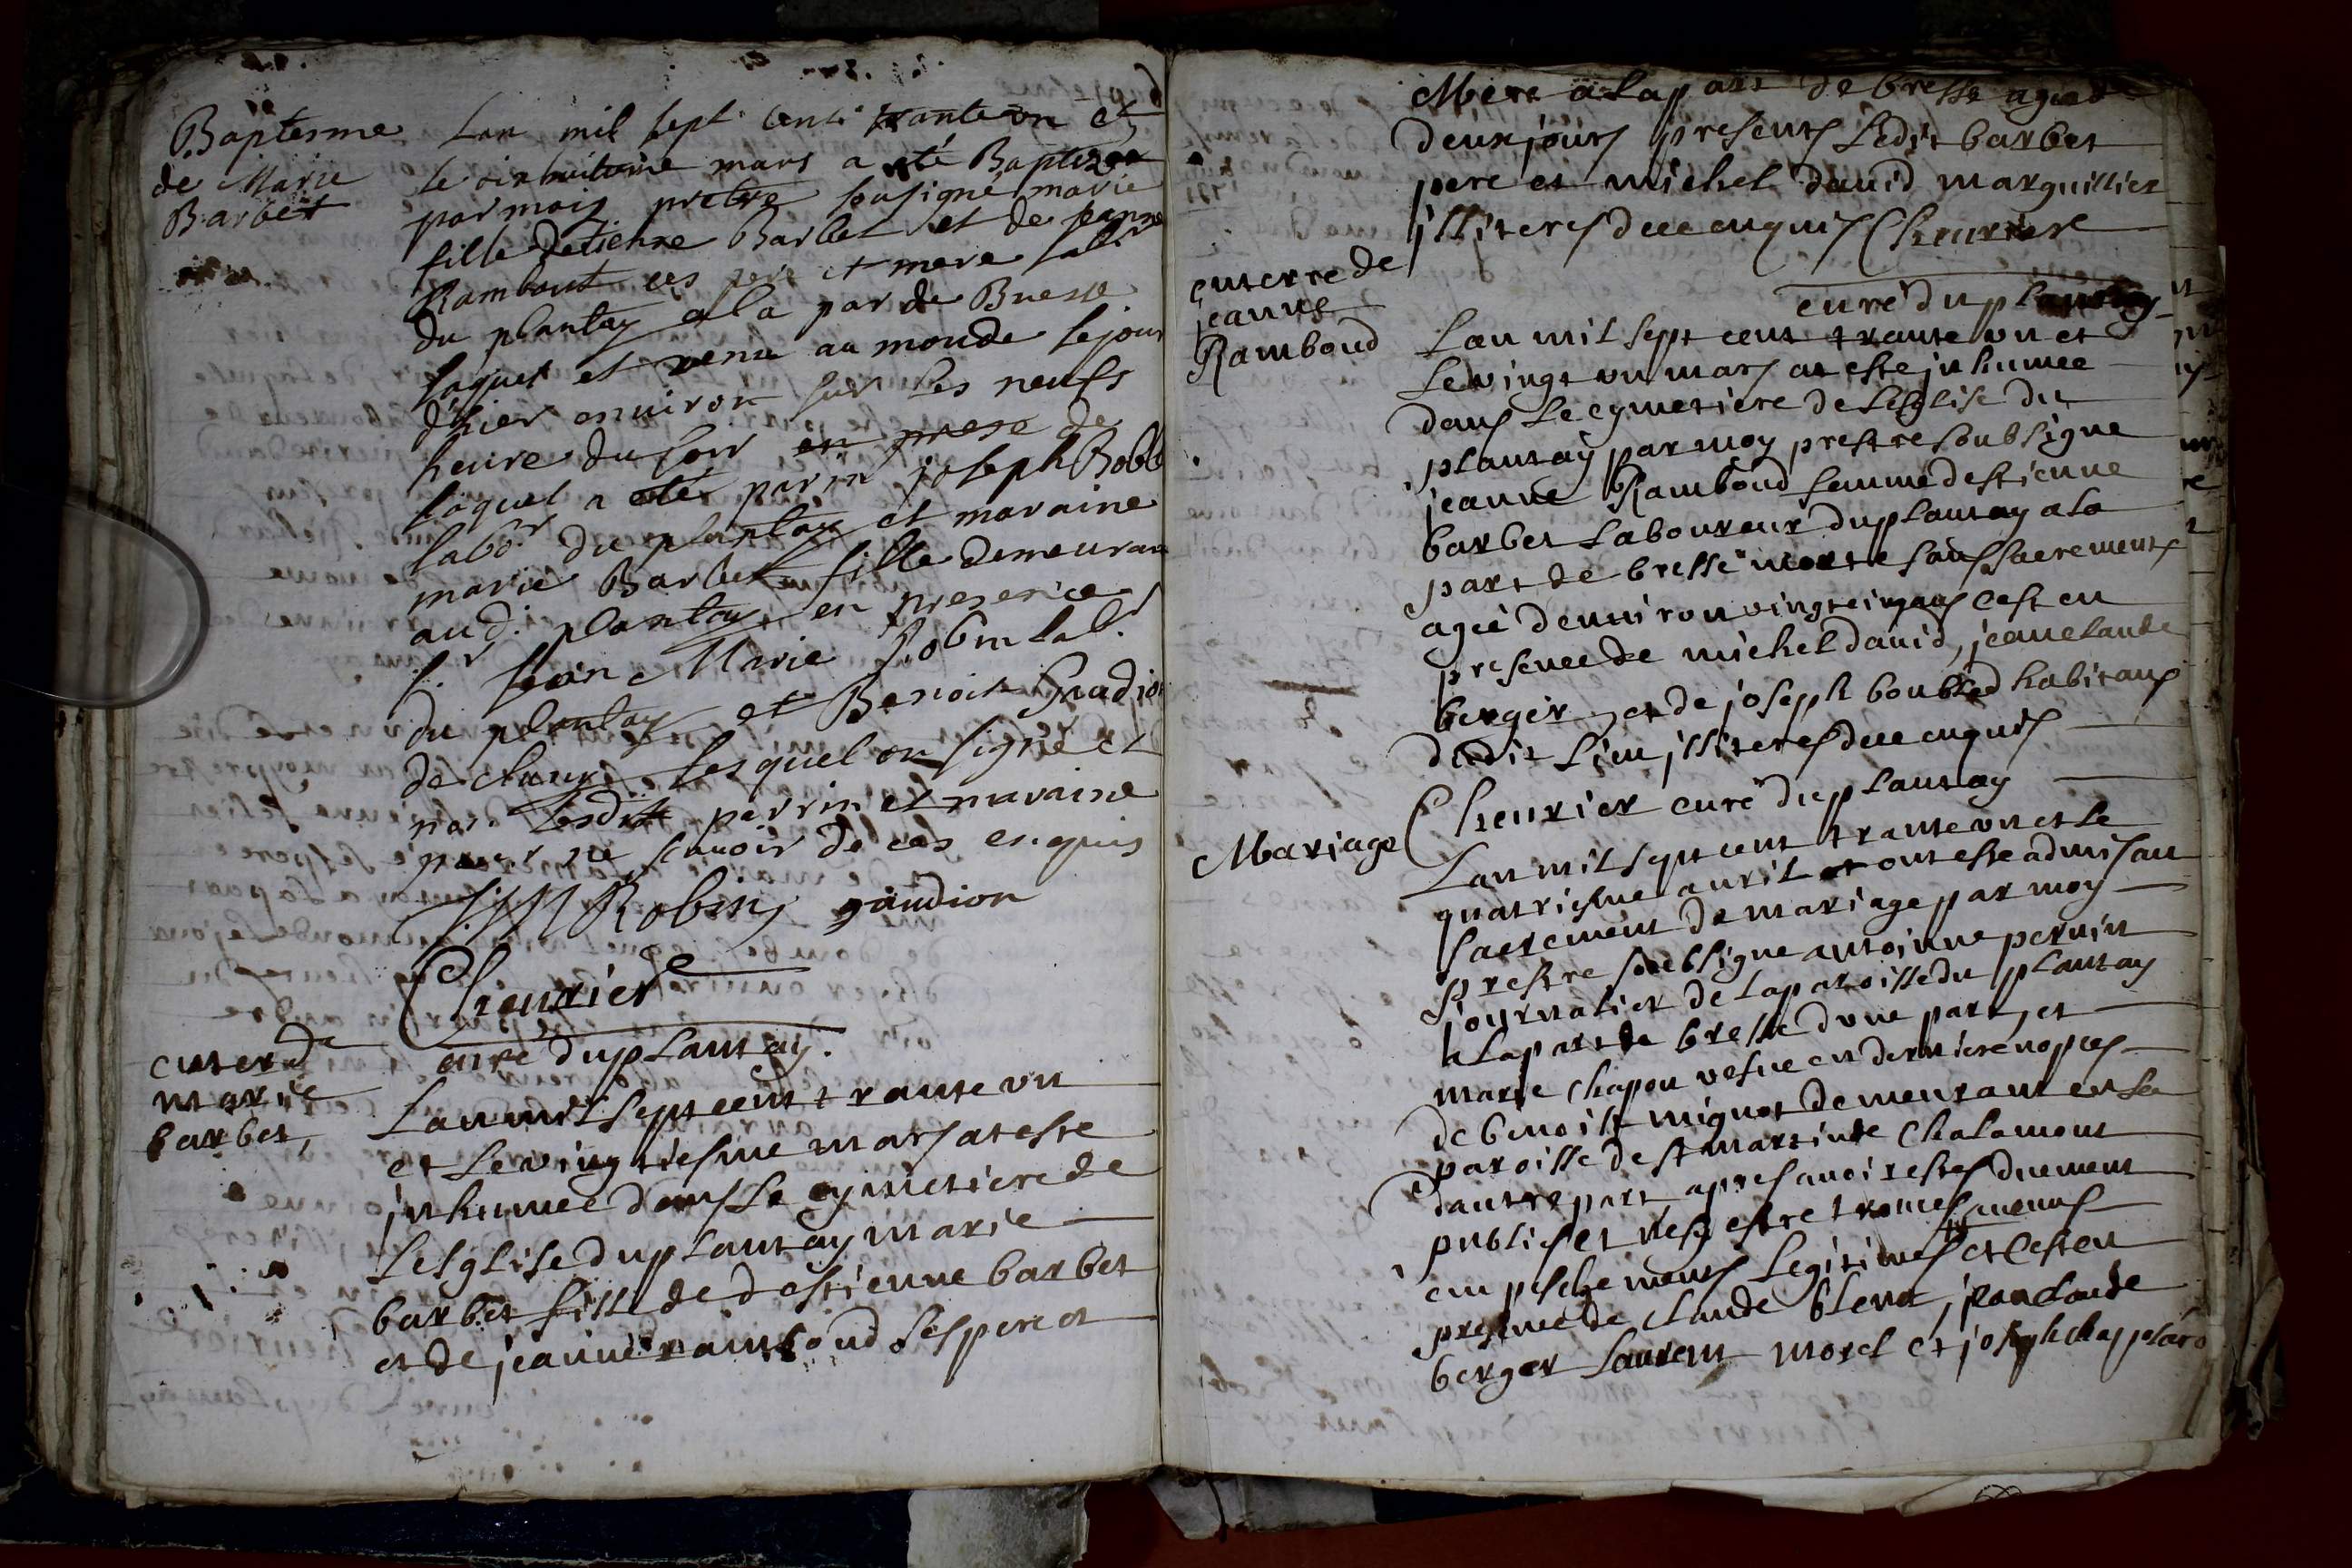 Baptesme
de Marie
Barbet
Lan mil sept cent trante un et
le dixhuitieme mars a eté Baptizee
par mois pretre sousigné marie
fille detienne Barbet et de jeanne
Rambout ces pere et mere labr
du plantay a la par de Bresse
laquel et venu au monde le jour
d'hier environ sur les neufs
heure du soir
laquel a eté parin joseph
labor du plantay et maraine
marie Barbet fille demeurant
aud. plantay en presence
sr jean Marie Robin labr
du plantay et Benoit Gaudion
de lesquel on signé et
non lesdit parrin et maraine
pour ne scavoir de ces enquis
J M Robin gaudion
Cheurier
curé du plantay.
enter de
marie
barbet,
Lan mil sept cent trante vn
et le vingtiesme mars at este
inhumee dans le cymetiere de
lesglise du plantay marie
barbet fille de destienne barbet
et de jeanne ramboud ses pere et
Mere a la part de bresse agee de
deux jours presents ledit barbet
pere et michel david marguillier
illiteres deue enquis Cheurier
curé du plantay
enterre de
jeanne
Ramboud
Lan mil sept cent trante vn et
le vingt vn mars at este inhumee
dans le cymetiere de lesglise du
plantay par moy prestre soubsigne
jeanne Ramboud femme destienne
barbet laboureur du plantay a la
part de bresse morte sans sacrements
agée denuiron vingt cinq ans cest en
presence de michel david, jeanclaude
berger et de joseph boubled habitans
dudit lieu illiteres deue enquis
Cheurier curé du plantay
Mariage
Lan mil sept cent trante vn et le
quatriesme auril et ont esté admis au
sacrement de mariage par moy
prestre soubsigne antoinne pernin
journalier de la paroisse du plantay
a la part de bresse dvne part, et
marie chapon vefue en derniere nopces
de benoist mignot demeurant en la
paroisse de st martin de Chalamont
dautre part apres auoir estes duement
publies et ness estre trouues aucuns
empeschements legitimes et cest en
presence de claude blenet, jeanclaude
berger laurent morel et joseph